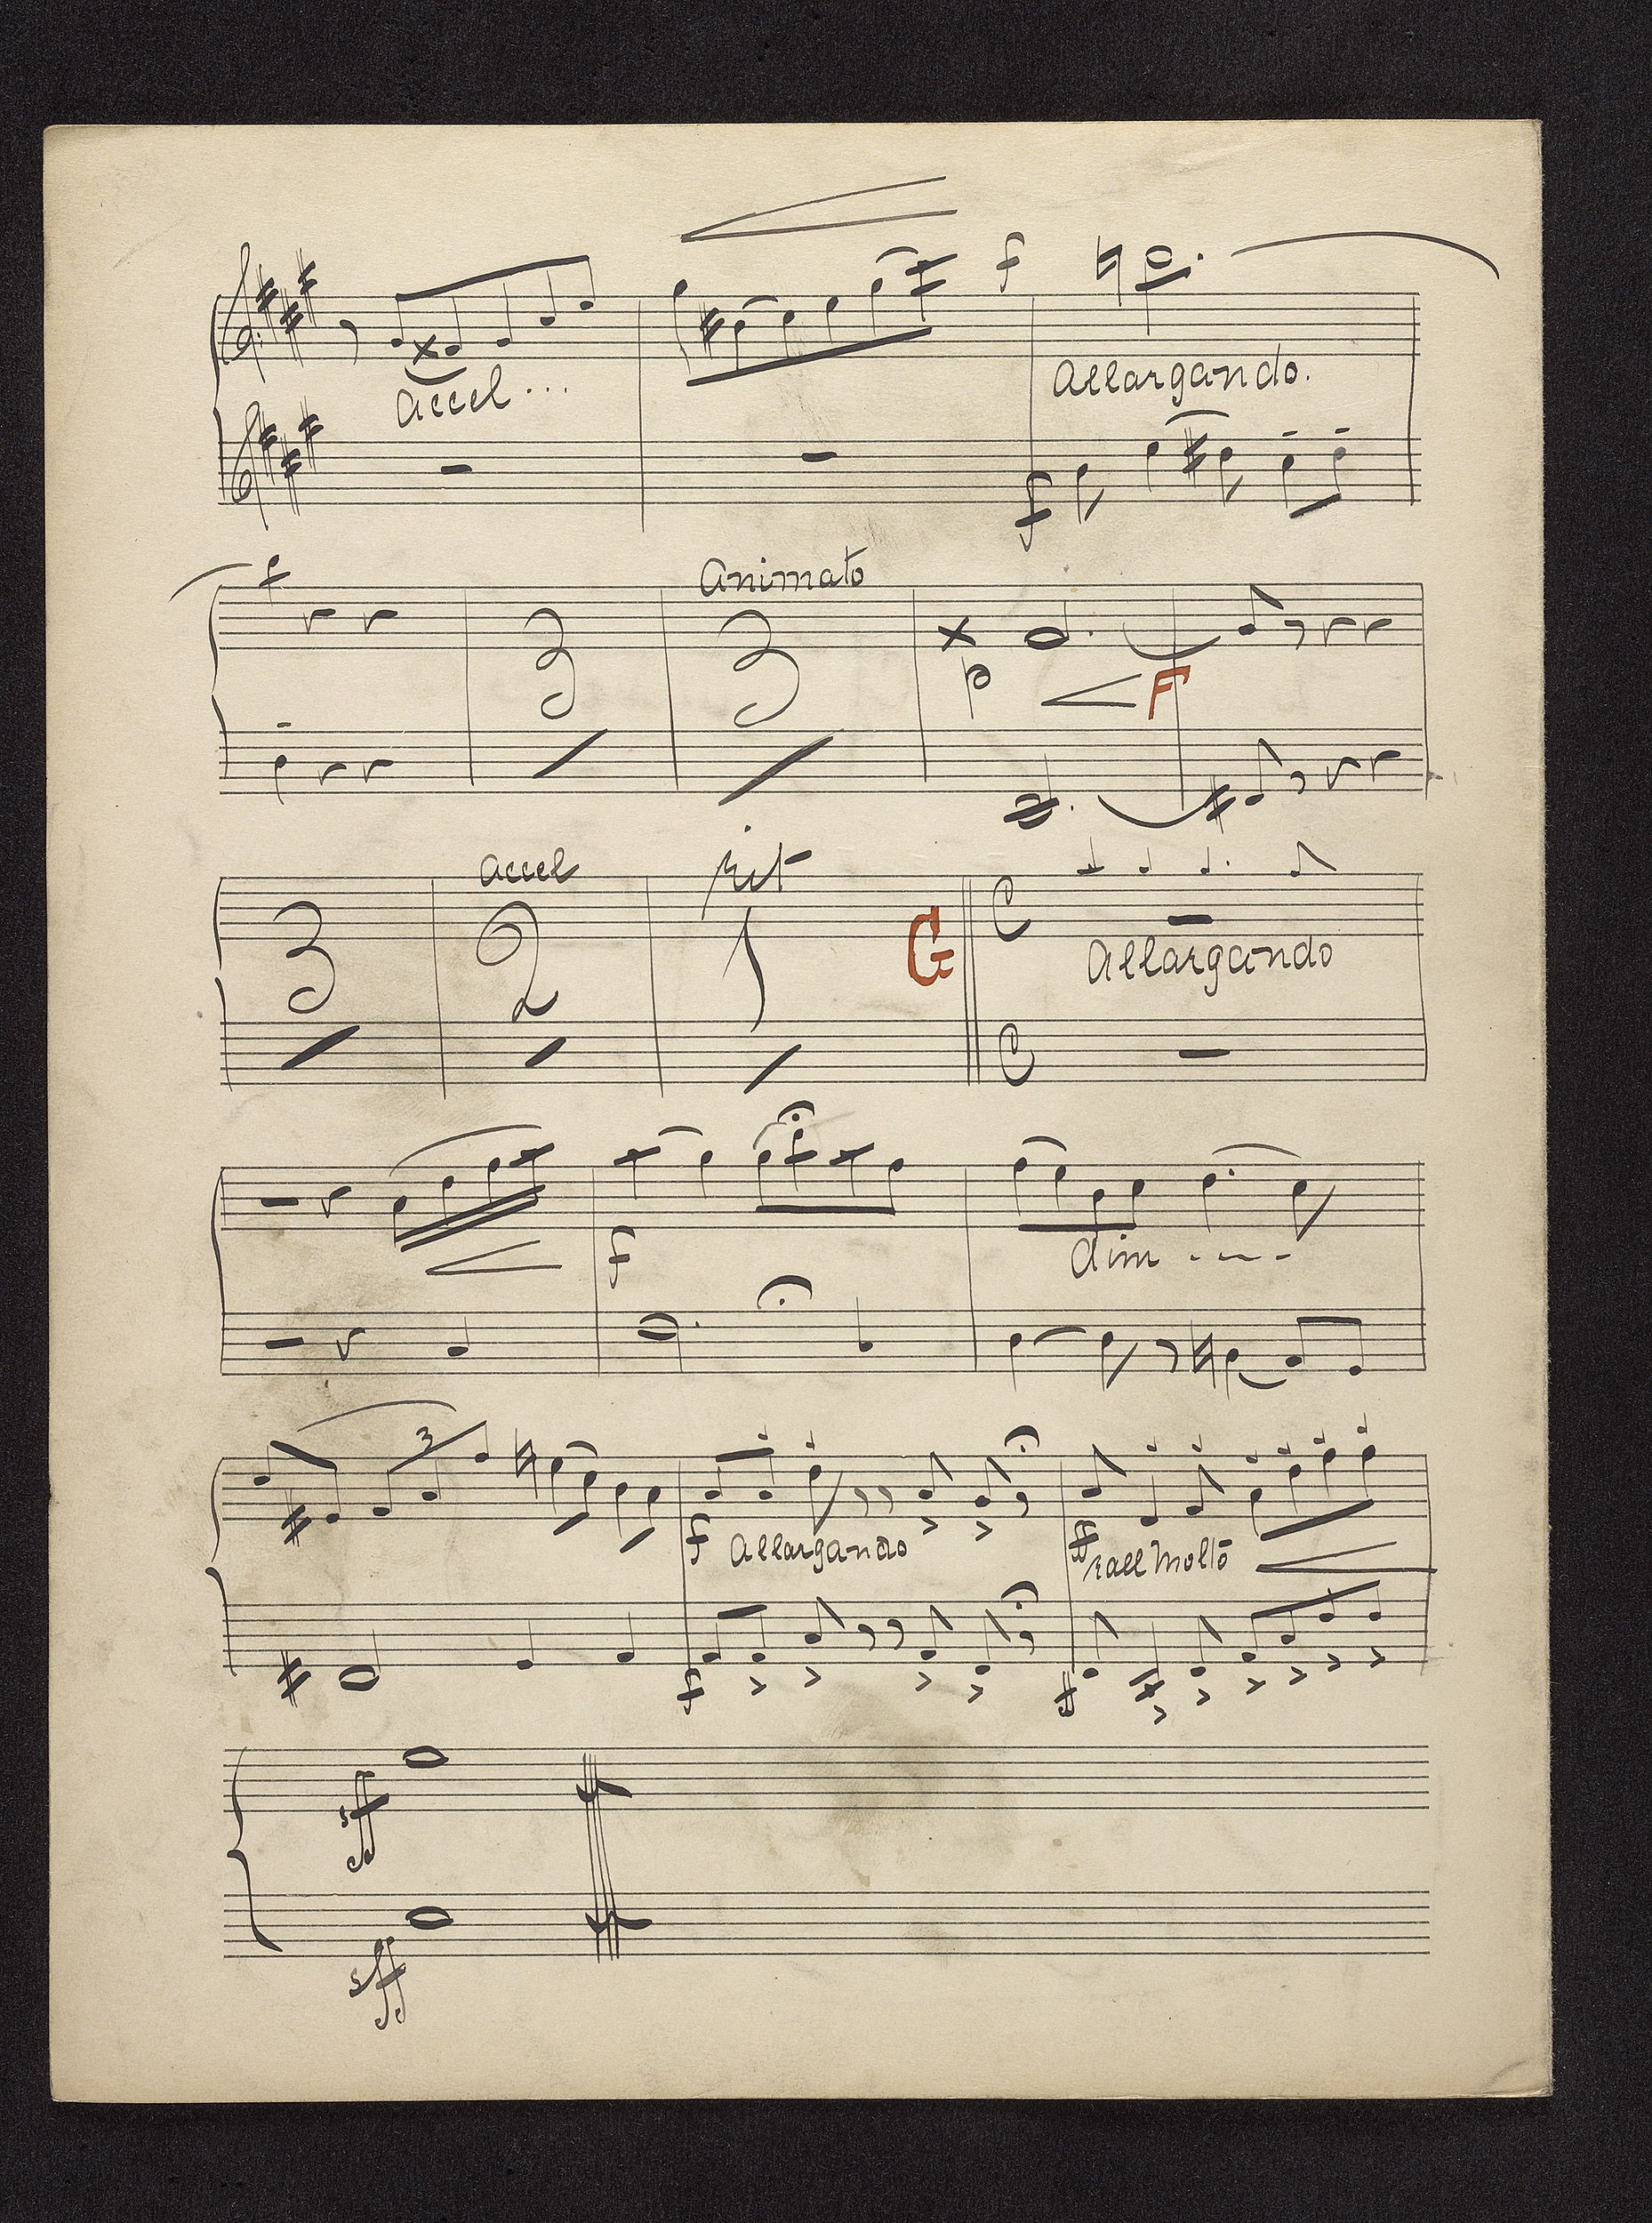 f
accel...
Allargando.
f
Animato
3 3
p F
accel rit
3 2 1 G C
Allargando
C
f
dim - - -
3
f Allargando ff rall Molto
f ff
sff
sff